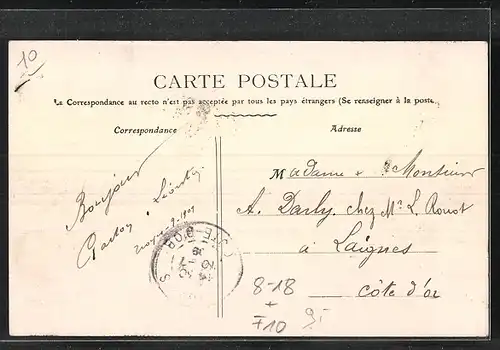 10
CARTE POSTALE
La Correspondance au recto n'est pas acceptée par tous les pays étrangers (Se renseigner à la poste
Correspondance
Adresse
Madame & Monsieur
Bonjour
A. Darly, chez Mr L. Rouot
à Laignes
CÔTE-D'OR
8-18
côte d'or
+
F10 9.-